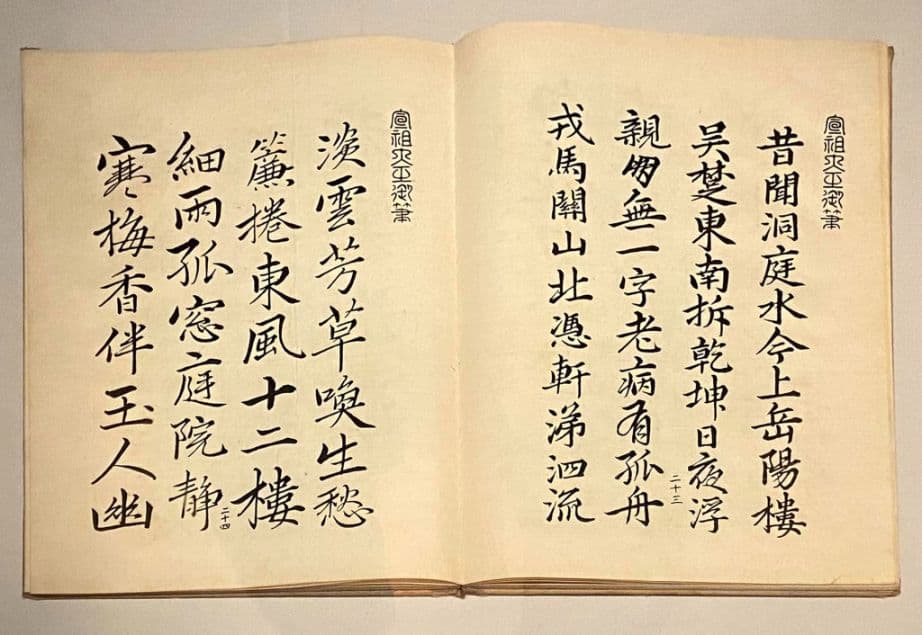 宣祖大王御筆
昔聞洞庭水今上岳陽樓
吳楚東南拆乾坤日夜浮
二十三
親朋無一字老病有孤舟
戎馬關山北憑軒涕泗流
宣祖大王御筆
淡雲芳草喚生愁
簾捲東風十二樓
細雨孤窓庭院靜
二十四
寒梅香伴玉人幽